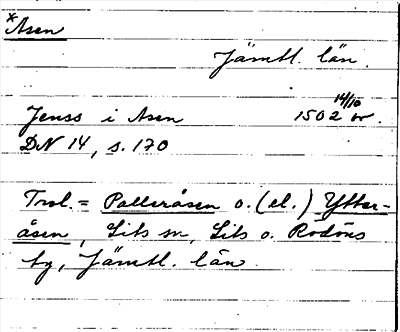 *Asen
Jämtl. län.
Jenss i Asen 1502 14/10 or.
DN 14, s. 170
Trol. = Palleråsen o. (el.) Ytter-
åsen, Lits sn, Lits o. Rödöns
tg, Jämtl. län.